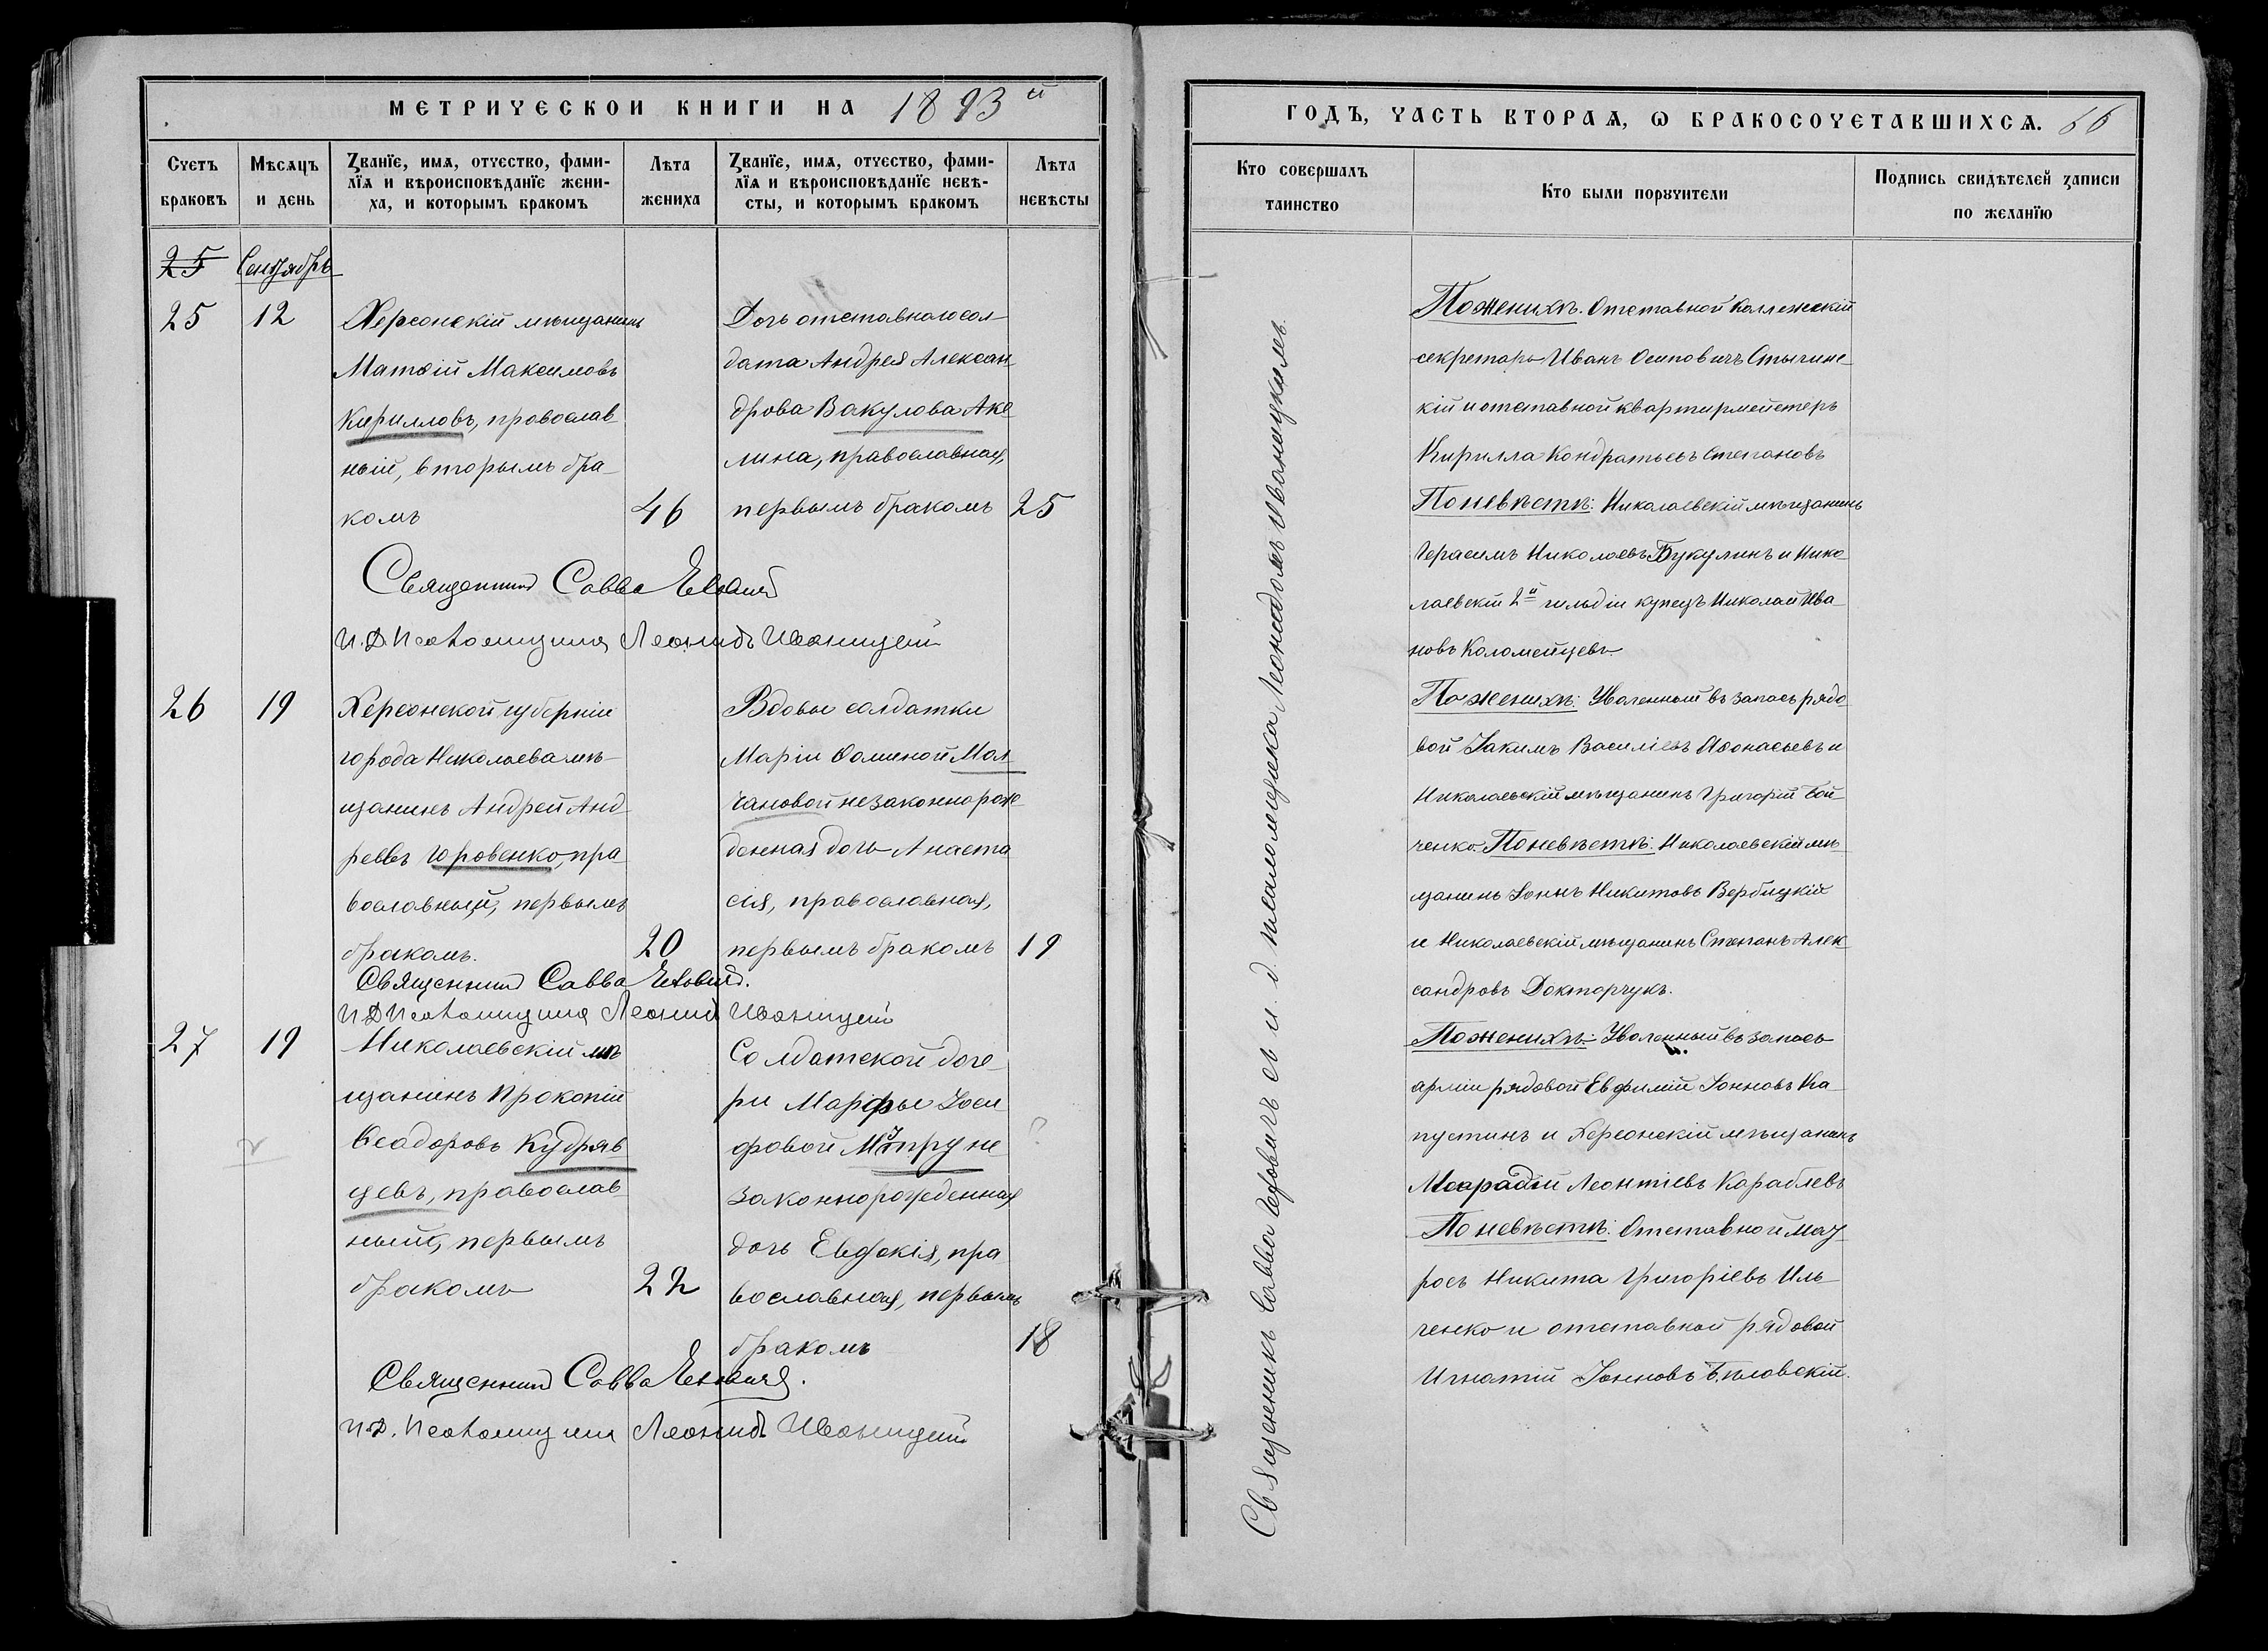 МЕТРИЧЕСКОИ КНИГИ НА 1893й
Счетъ браковъ
Мѣсяцъ и день
Званїе, имя, отчество, фами-
лїя и вѣроисповѣданїе жени-
ха, и которымъ бракомъ
Лѣта жениха
Званїе, имя, отчество, фами-
лїя и вѣроисповѣданїе невѣ-
сты, и которымъ бракомъ
Лѣта невѣсты
25 Сентябрь
25 12
Херсонскій мѣщанинъ
Матѳій Максимовъ
Кирилловъ, православ
ный, вторымъ бра-
комъ
46
Дочь отставного сол
дата Андрея Алексан
дрова Вакулова Аке
лина, православная,
первымъ бракомъ
25
Священникъ Савва
И. Д. Псаломщика Леонидъ Иваницкій
26 19
Херсонской губерніи
города Николаева мѣ-
щанинъ Андрей Анд-
реевъ Юровенко, пра-
вославный, первымъ
бракомъ.
20
Вдовы солдатки
Маріи Ѳоминой Мол
чановой незаконнорож-
денная дочь Анаста
сія, православная,
первымъ бракомъ
19
Священникъ Савва
И Д Псаломщика Леонид Иваницкій
27 19
Николаевскій мѣ
щанинъ Прокопій
Ѳеодоровъ Кудряв
цевъ, православ
ный, первымъ
бракомъ
22
Солдатской доче
ри Марфы Іоси
фовой не
законнорожденная
дочь Евдокія, пра
вославная, первымъ
бракомъ
18
?
Священникъ Савва
И. Д. Псаломщика Леонидъ Иваницкій
ГОДЪ, ЧАСТЬ ВТОРАЯ, Ѡ БРАКОСОЧЕТАВШИХСЯ. 66
Кто совершалъ таинство
Кто были порꙋчители
Подпись свидѣтелей записи по желанїю
Священникъ Савва съ и. д. псаломщика Леонидомъ Иваницкимъ.
По женихѣ. Отставной Коллежскій
секретарь Иванъ Осиповичъ Стычинс-
кій и отставной квартирмейстеръ
Кирилла Кондратьевъ Степановъ
По невѣстѣ: Николаевскій мѣщанинъ
Герасимъ Николаевъ Букулинъ и Нико
лаевскій 2й гильдіи купецъ Николай Ива-
новъ Коломейцевъ.
По женихѣ: Уволенный въ запасъ рядо-
вой Іакимъ Василіевъ Аѳонасьевъ и
Николаевскій мѣщанинъ Григорій Бой-
ченко. По невѣстѣ: Николаевскій мѣ-
щанинъ Іоннъ Никитовъ Вербицкій
и Николаевскій мѣщанинъ Степанъ Алек-
сандровъ Докторчукъ.
По женихѣ: Уволенный въ запасъ
арміи рядовой Евфимій Іонновъ Ка-
пустинъ и Херсонскій мѣщанинъ
Леонтіевъ Караблевъ
По невѣстѣ: Отставной мат-
росъ Никита Григоріевъ Иль-
ченко и отставной рядовой
Игнатій Іонновъ Бѣловскій.